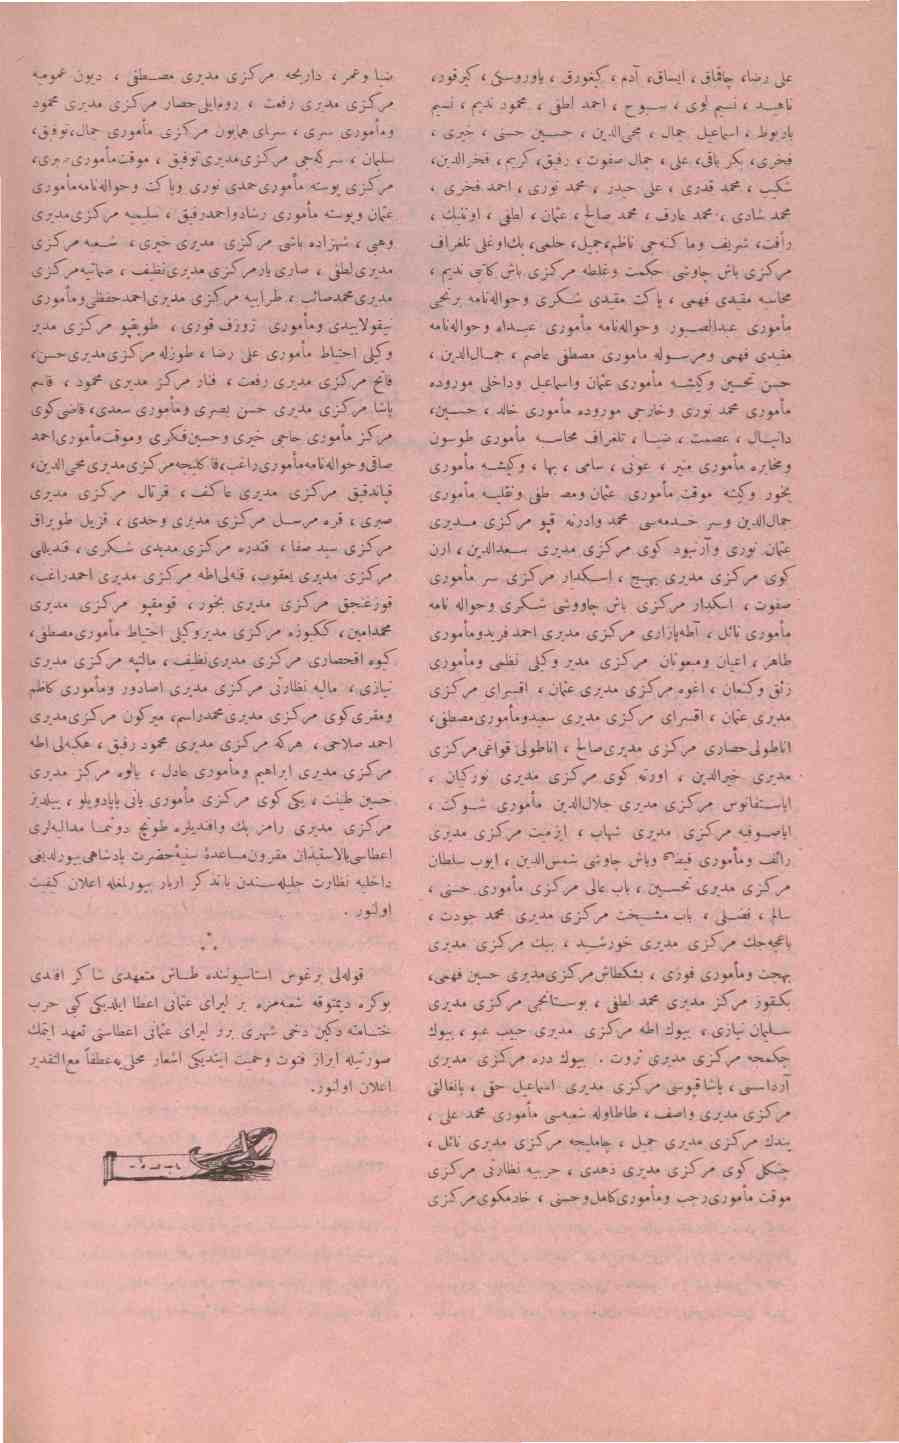 علی رضا، چاقاق، ایساق، آدم، کیغورق، یاوروسی، کبرقور،
ناهید، نسیم لوی، سبوح، احمد لطفی، محمود ندیم، نسیم
باربوط، اسماعیل جمال، محی‌الدین، حسین حسنی، خیری،
فخری، بکر باقی، علی، جمال صفوت، رفیق، کریم، فخرالدین،
شکیب، محمد قدری، علی حیدر، محمد نوری، احمد فخری،
محمد شادی، محمد عارف، محمد صالح، عثمان، لطفی، اوننیك،
رأفت، شریف وماکنه‌جی ناظم، جمیل، حلمی، بك‌اوغلی تلغراف
مرکزی باش چاوشی حکمت وغلطه مرکزی باش کاتبی ندیم،
محاسبه مقیدی فهمی، پاکت مقیدی شکری وحواله‌نامه برنجی
مأموری عبدالصبور وحواله‌نامه مأموری عبدالله وحواله‌نامه
مقیدی فهمی ومرسوله مأموری مصطفی عاصم، جمال‌الدین،
حسن تحسین وکیشه مأموری عثمان واسماعیل وداخلی موروده
مأموری محمد نوری وخارجی موروده مأموری خالد، حسین،
دانیال، عصمت، ضیا، تلغراف محاسبه مأموری طوسون
ومخابره مأموری منیر، عونی، سامی، بها، وکیشه مأموری
بخور وکیشه موقت مأموری عثمان ومصطفی ونقلیه مأموری
جمال‌الدین وسر خدمه‌سی محمد وادرنه قپو مرکزی مدیری
عثمان نوری وآرنبود کوی مرکزی مدیری سعدالدین، ارن
کوی مرکزی مدیری بهیج، اسکدار مرکزی سر مأموری
صفوت، اسکدار مرکزی باش چاووشی شکری وحواله نامه
مأموری نائل، آطه‌پازاری مرکزی مدیری احمد فریدومأموری
طاهر، اعیان ومبعوثان مرکزی مدیر وکیلی نظمی ومأموری
رزق وکنعان، اغوه مرکزی مدیری عثمان، اقسرای مرکزی
مدیری عثمان، اقسرای مرکزی مدیری سعیدومأموری مصطفی،
اناطولی حصاری مرکزی مدیری صالح، اناطولی قواغی مرکزی
مدیری خیرالدین، اورته کوی مرکزی مدیری نورکیان،
ایاستفانوس مرکزی مدیری جلال‌الدین مأموری شوکت،
ایاصوفیه مرکزی مدیری شهاب، ازمیت مرکزی مدیری
رائف ومأموری فیضی وباش چاوشی شمس‌الدین، ایوب سلطان
مرکزی مدیری تحسین، باب عالی مرکزی مأموری حسنی،
سالم، فضلی، باب مشیخت مرکزی مدیری محمد جودت،
باغچه‌جك مرکزی مدیری خورشید، ببك مرکزی مدیری
بهجت ومأموری فوزی، بشکطاش مرکزی مدیری حسین فهمی،
بکقوز مرکز مدیری محمد لطفی، بوستانجی مرکزی مدیری
سلیمان نیازی، بیوك اطه مرکزی مدیری حبیب عبو، بیوك
چکمجه مرکزی مدیری ثروت. بیوك دره مرکزی مدیری
آرداسس، پاشاقپوسی مرکزی مدیری اسماعیل حقی، پانغالتی
مرکزی مدیری واصف، طاطاوله شعبه‌سی مأموری محمد علی،
پندك مرکزی مدیری جمیل، چاملیجه مرکزی مدیری نائل،
چنکل کوی مرکزی مدیری زهدی، حربیه نظارتی مرکزی
موقت مأموری رجب ومأموری کامل وحسنی، خادمکوی مرکزی
ضیا وعمر، داریجه مرکزی مدیری مصطفی، دیون عمومیه
مرکزی مدیری رفعت، روم‌ایلی حصار مرکزی مدیری محمود
ومأموری سری، سرای همایون مرکزی مأموری جمال، توفیق،
سلیمان، سرکه‌جی مرکزی مدیری توفیق، موقت مأموری صبری،
مرکزی پوسته مأموری حمدی نوری وپاکت وحواله‌نامه مأموری
عثمان وپوسته مأموری رشاد واحمدرفیق، سلیمیه مرکزی مدیری
وهبی، شهزاده باشی مرکزی مدیری خیری، شعبه مرکزی
مدیری لطفی، صاری یار مرکزی مدیری نظیف، ضبطیه مرکزی
مدیری محمد صائب، طرابیه مرکزی مدیری احمد حفظی ومأموری
نیقولاییدی ومأموری ژوزف قوری، طوپقپو مرکزی مدیر
وکیلی احتیاط مأموری علی رضا، طوزله مرکزی مدیری حسن،
فاتح مرکزی مدیری رفعت، فنار مرکز مدیری محمود، قاسم
پاشا مرکزی مدیری حسن بصری ومأموری سعدی، قاضی کوی
مرکز مأموری حاجی خیری وحسین فکری وموقت مأموری احمد
صافی وحواله‌نامه مأموری راغب، قاکلیجه مرکزی مدیری محی‌الدین،
قپاندقیق مرکزی مدیری عاکف، قرتال مرکزی مدیری
صبری، قره مرسل مرکزی مدیری وحدی، قزیل طوپراق
مرکزی سید صفا، قندره مرکزی مدیدی شکری، قندیللی
مرکزی مدیری یعقوب، قنه‌لی‌اطه مرکزی مدیری احمد راغب،
قوزغنجق مرکزی مدیری بخور، قومقپو مرکزی مدیری
محمدامین، ککبوزه مرکزی مدیروکیلی احتیاط مأموری مصطفی،
کیوه اقحصاری مرکزی مدیری نظیف، مالتپه مرکزی مدیری
نیازی، مالیه نظارتی مرکزی مدیری اصادور ومأموری کاظم
ومقری کوی مرکزی مدیری محمدراسم، میرکون مرکزی مدیری
احمد صلاحی، هرکه مرکزی مدیری محمود رفیق، هکبه‌لی اطه
مرکزی مدیری ابراهیم ومأموری عادل، یالوه مرکز مدیری
حسین طینت، یکی کوی مرکزی مأموری یانی پاپادوپلو، ییلدیز
مرکزی مدیری رامز بك وافندیلره طونج دونما مدالیه‌لری
اعطاسی بالاستیذان مقرون مساعدۀ سنیۀ حضرت پادشاهی بیورلدیغی
داخلیه نظارت جلیله‌سندن باتذکر اربار بیورلمغله اعلان کیفیت
اولنور.
قوله‌لی برغوس استاسیوننده طاش متعهدی شاکر افندی
بوکره دیمتوقه شعبه‌مزه بر لیرای عثمانی اعطا ایلدیکی کبی حرب
ختامنه دکین دخی شهری برر لیرای عثمانی اعطاسی تعهد ایتمك
صورتیله ابراز فتوت وحمیت ایتدیکی اشعار محلی‌یه عطفاً مع‌التقدیر
اعلان اولنور.